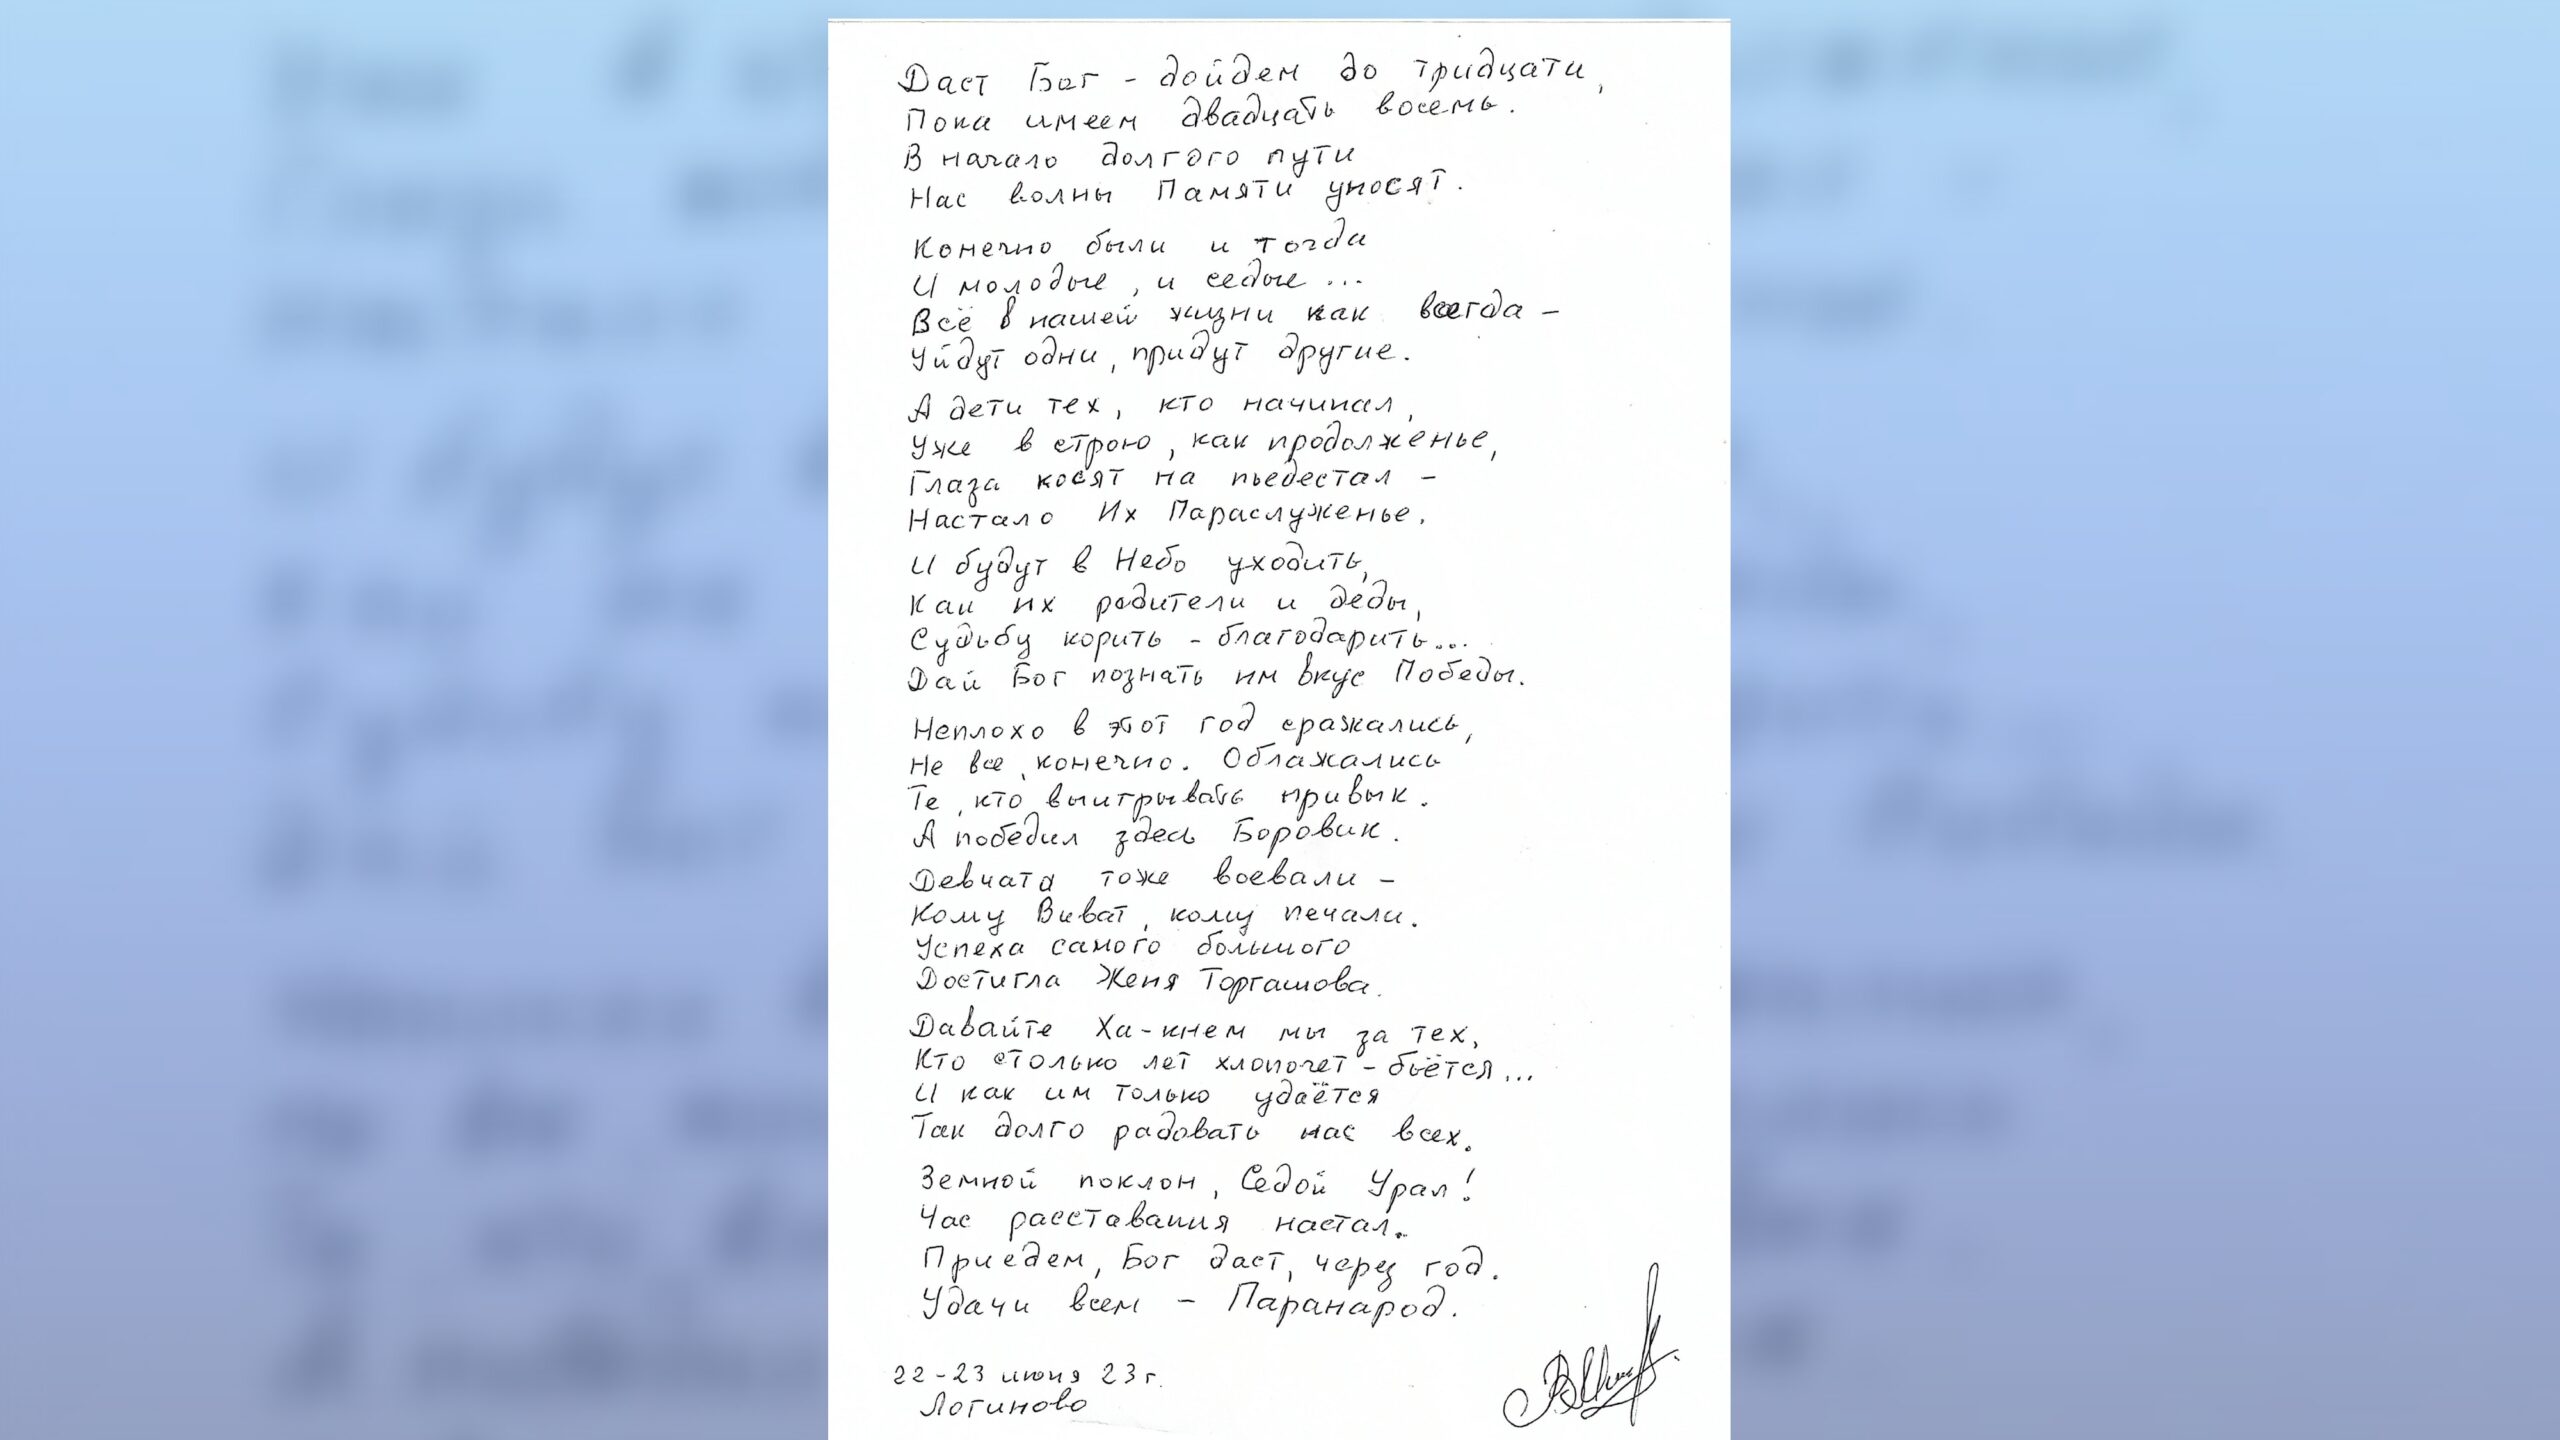 Даст Бог - дойдем до тридцати,
Пока имеем двадцать восемь.
В начало долгого пути
Нас волны Памяти уносят.
Конечно были и тогда
И молодые, и седые...
Всё в нашей жизни как всегда -
Уйдут одни, придут другие.
А дети тех, кто начинал,
Уже в строю, как продолженье,
Глаза косят на пьедестал -
Настало Их Параслуженье.
И будут в Небо уходить,
Как их родители и деды,
Судьбу корить - благодарить...
Дай Бог познать им вкус Победы.
Неплохо в этот год сражались,
Не все, конечно. Облажались
Те, кто выигрывать привык.
А победил здесь Боровик.
Девчата тоже воевали -
Кому Виват, кому печали.
Успеха самого большого
Достигла Женя Торгашова.
Давайте Ха-кнем мы за тех,
Кто столько лет хлопочет - бьётся...
И как им только удаётся
Так долго радовать нас всех.
Земной поклон, Седой Урал!
Час расставания настал.
Приедем, Бог даст, через год.
Удачи всем - Паранарод.
22-23 июня 23 г.
Логиново